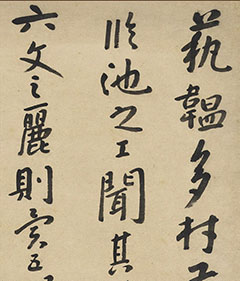 藝韞多材
臨池之工聞其
六文之麗則實五